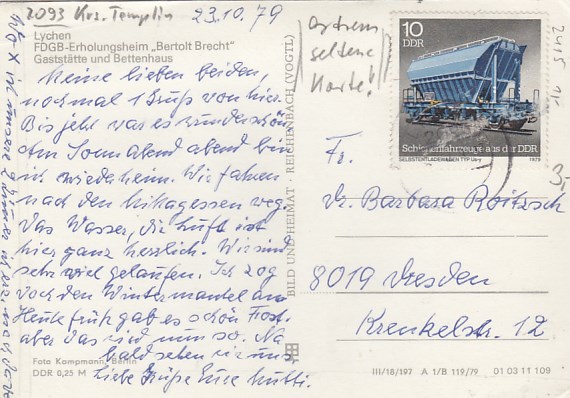 2093 Krs. Templin 23.10.79
Lychen
FDGB-Erholungsheim „Bertolt Brecht"
Gaststätte und Bettenhaus
extrem
seltene
Karte!
Meine lieben beiden,
nochmal 1 Gruß von hier.
Bis jetzt war es wunderschön
Am Sonnabend abend bin
ich wieder heim. Wir fahren
nach dem Mittagessen weg.
Das Wasser, die Luft ist
hier ganz herrlich. Wir sind
sehr viel gelaufen. Ich zog
doch den Wintermantel an
Heute früh gab es schön Frost.
aber das sind nun so. Na
bald sehen wir uns
Liebe Grüße Eure Mutti.
wo X ist unsere Zimmer
Foto Kampmann, Berlin
DDR 0,25 M
BILD UND HEIMAT · REICHENBACH (VOGTL)
10
DDR
Schienenfahrzeuge aus der DDR
SELBSTENTLADEWAGEN TYP Us-y 1979
2415
3,-
Fr.
Dr. Barbara Roitzsch
8019 Dresden
Krenkelstr. 12
III/18/197 A 1/B 119/79 01 03 11 109